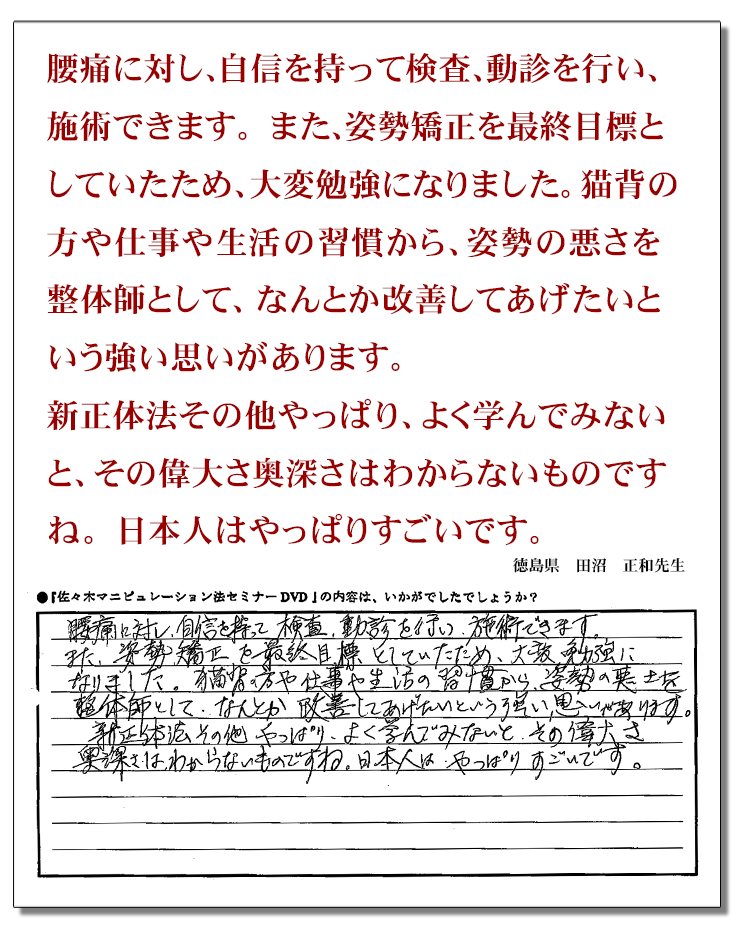 腰痛に対し、自信を持って検査、動診を行い、
施術できます。また、姿勢矯正を最終目標と
していたため、大変勉強になりました。猫背の
方や仕事や生活の習慣から、姿勢の悪さを
整体師として、なんとか改善してあげたいと
いう強い思いがあります。
新正体法その他やっぱり、よく学んでみない
と、その偉大さ奥深さはわからないものです
ね。日本人はやっぱりすごいです。
徳島県　田沼　正和先生
●『佐々木マニピュレーション法セミナーDVD』の内容は、いかがでしたでしょうか？
腰痛に対し、自信を持って 検査、動診を行い、施術できます。
また、姿勢矯正を最終目標としていたため、大変勉強に
なりました。猫背の方や仕事や生活の習慣から、姿勢の悪さを
整体師として、なんとか改善してあげたいという強い思いがあります。
新正体法その他やっぱり、よく学んでみないと、その偉大さ
奥深さはわからないものですね。日本人は、やっぱりすごいです。